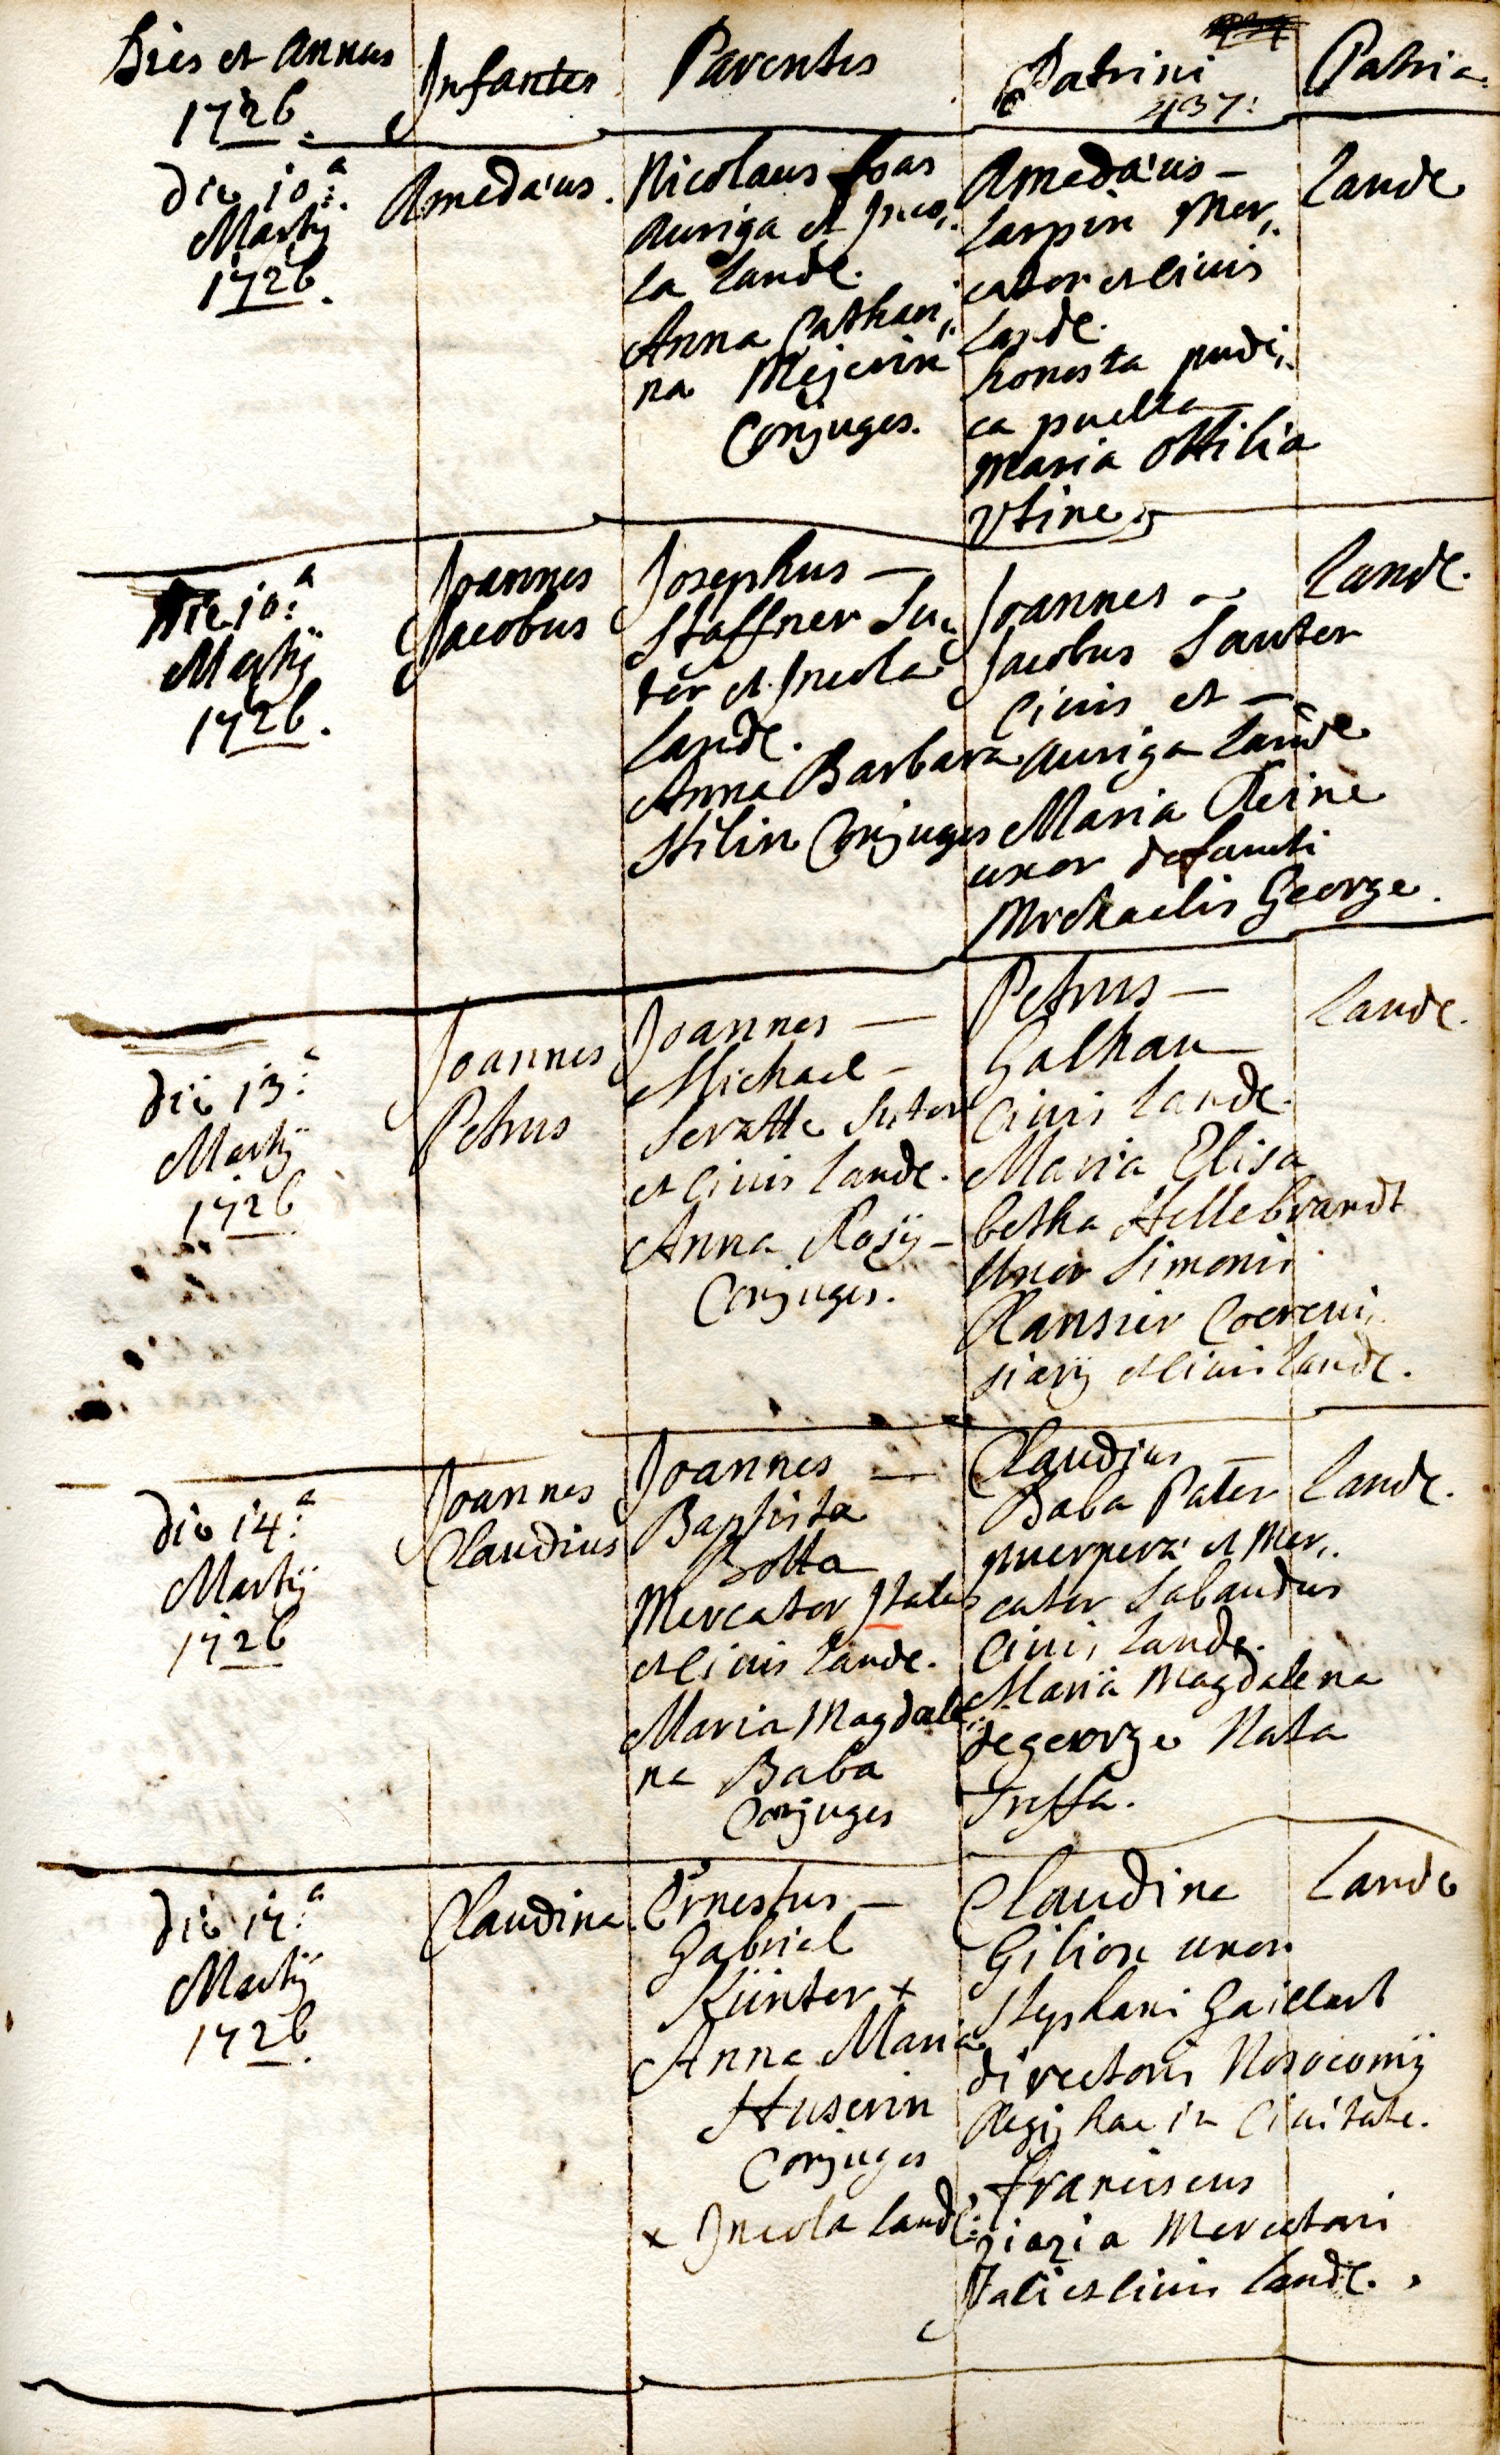 Dies et Annus
1726.
Infantes
Parentes
Patrini
437:
Patria.
die 10:a
Martij
1726.
Amedæus.
Nicolaus
Auriga et Inco,,
la Landæ.
Anna Cathari,,
na Mejerin
Conjuges.
Amedæus –
Larpin Mer,,
cator et civis
Landæ.
honesta pudi,,
ca puella
Maria Ottilia
Utine
Landæ
Die 10:a
Martij
1726.
Joannes
Jacobus
Josephus –
Staffner Su,,
tor et Incola
Landæ.
Anna Barbara
Stilin Conjuges
Joannes –
Jacobus Sauter
Civis et –
auriga Landæ
Maria Reine
uxor defuncti
Michaelis George.
Landæ.
die 13:a
Martij
1726
Joannes
Petrus
Joannes –
Michael –
Seratte Sutor
et Civis Landæ.
Anna Rosÿ –
Conjuges.
Petrus –
Galhau
Civis Landæ.
Maria Elisa
betha Hellebrandt
Uxor Simonis
Ransier Cocrevi,,
siarij et Civis Landæ.
Landæ.
die 14:a
Martij
1726
Joannes
Claudius
Joannes –
Baptista
Botta
Mercator Italus
et Civis Landæ.
Maria Magdale,,
na Baba
Conjuges
Claudius –
Baba Pater
puerperæ et Mer,,
cator Sabaudus
Civis Landæ.
Maria Magdalena
degeorge Nata
Treffa.
Landæ.
die 14:a
Martij
1726.
Claudina.
Ernestus –
Gabriel
Künter x
Anna Maria
Huserin
Conjuges
x Incola Landæ.
Claudine
Gilion uxor
Stephani Gaillart
directoris Nosocomij
Regij hac in Civitate.
Franciscus
Mercatori
Itali et Civis Landæ.
Landæ